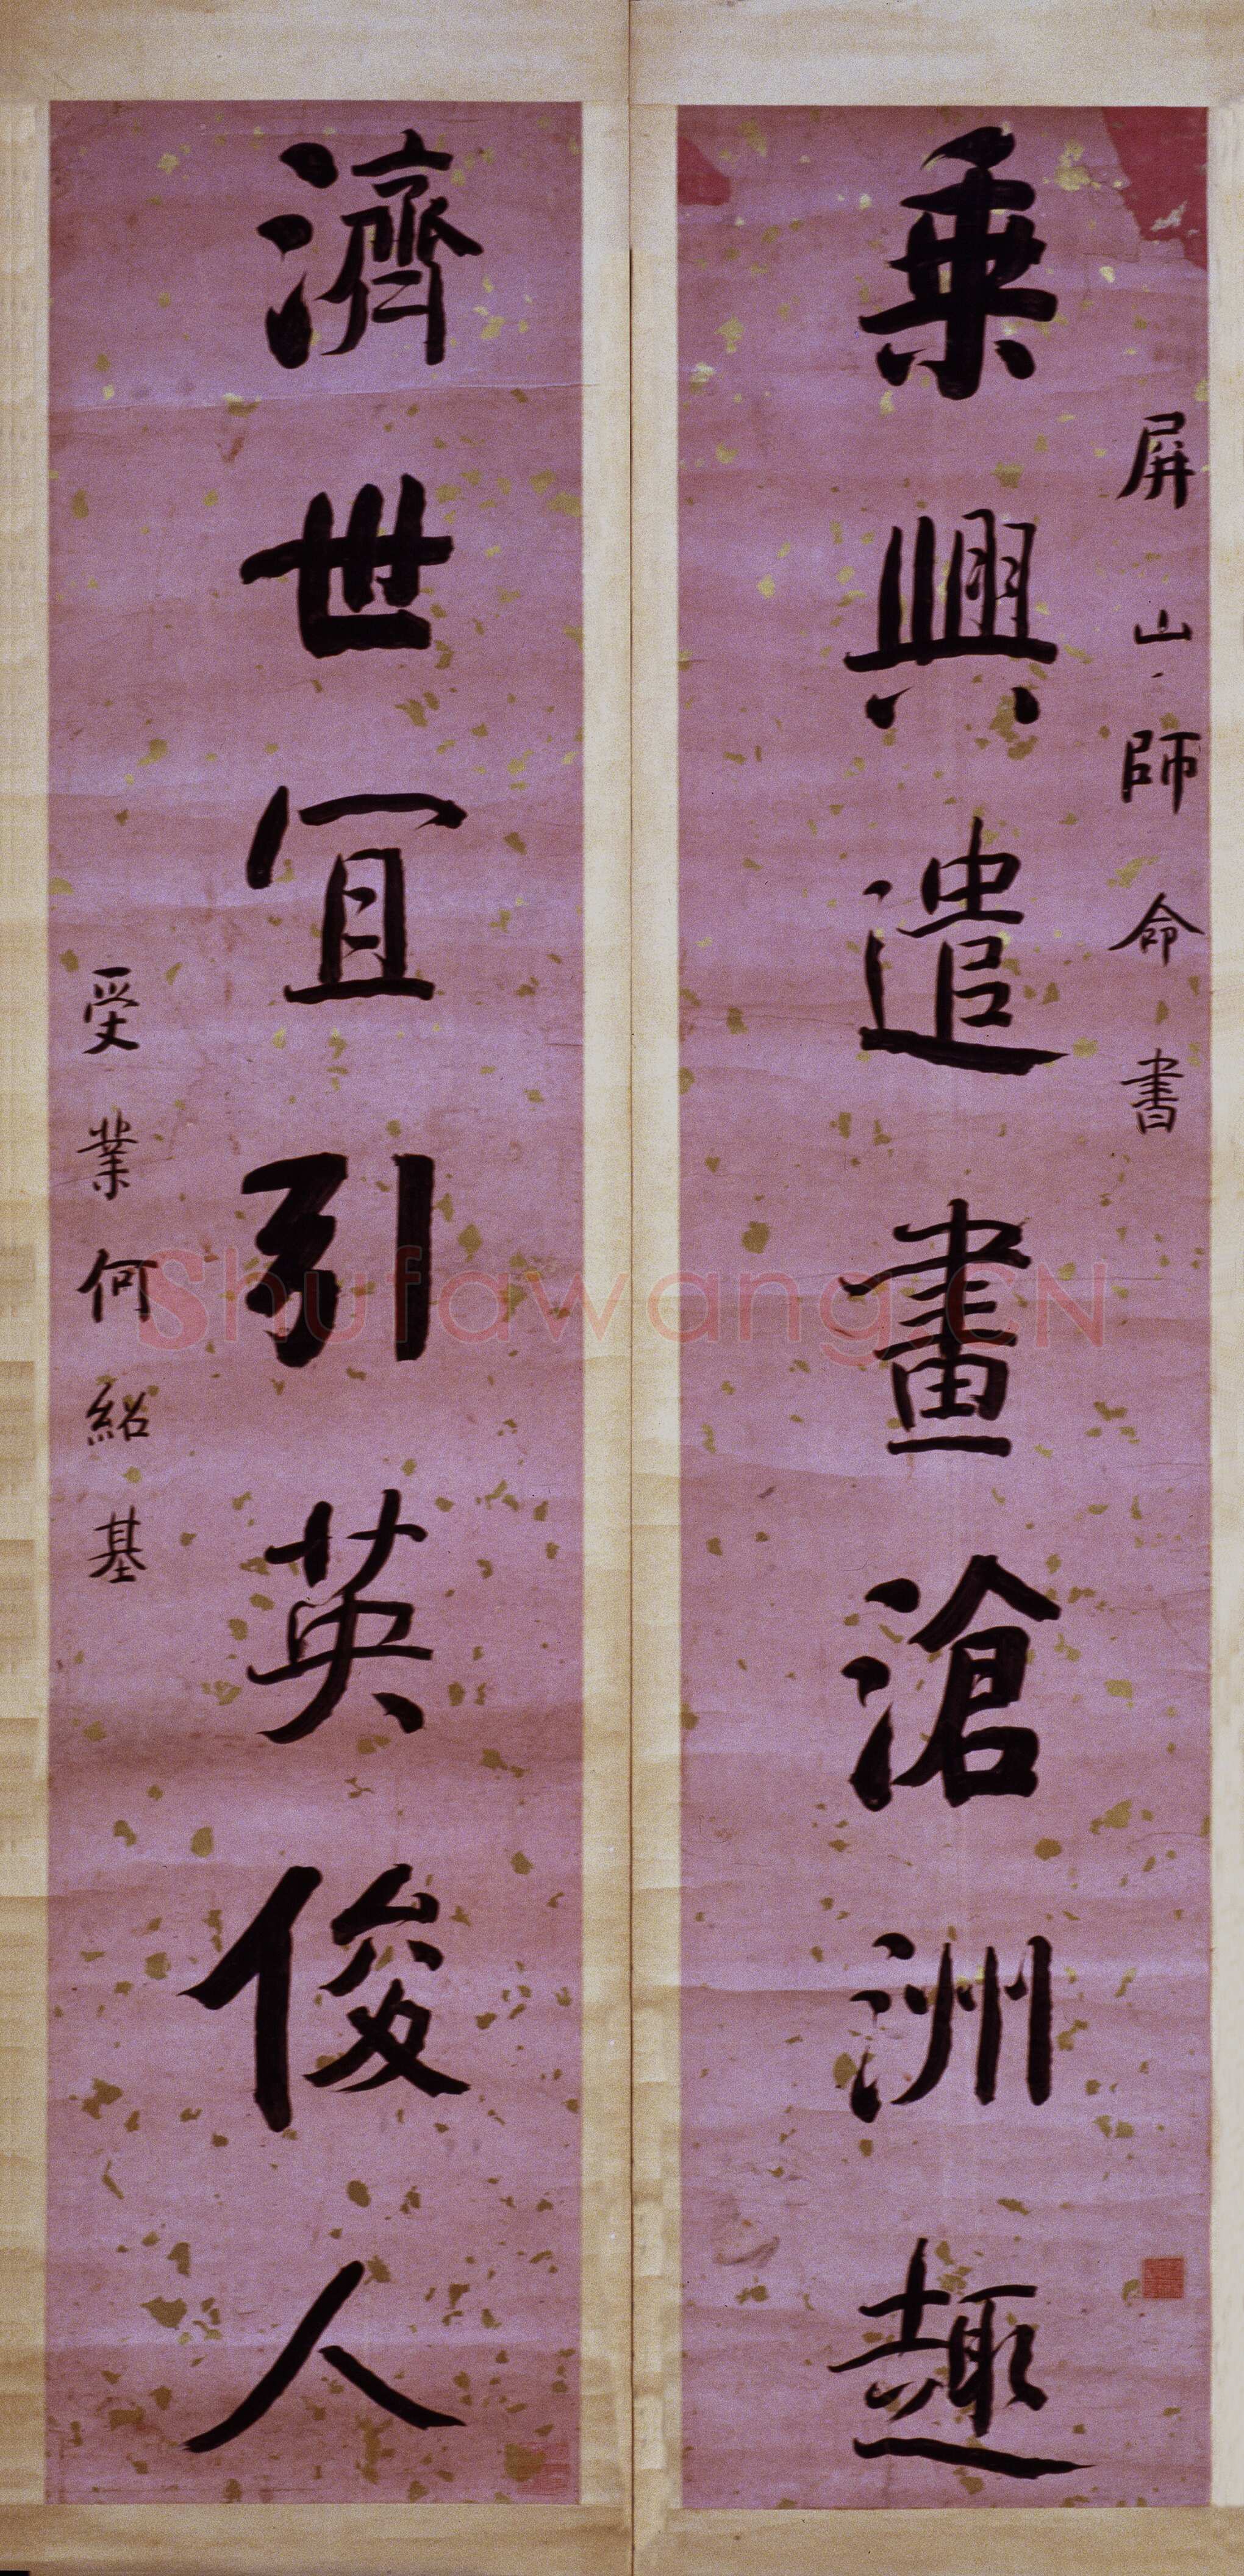 屏山師命書
乘興遣畫滄洲趣
濟世宜引英俊人
受業何紹基
Shufawang.CN